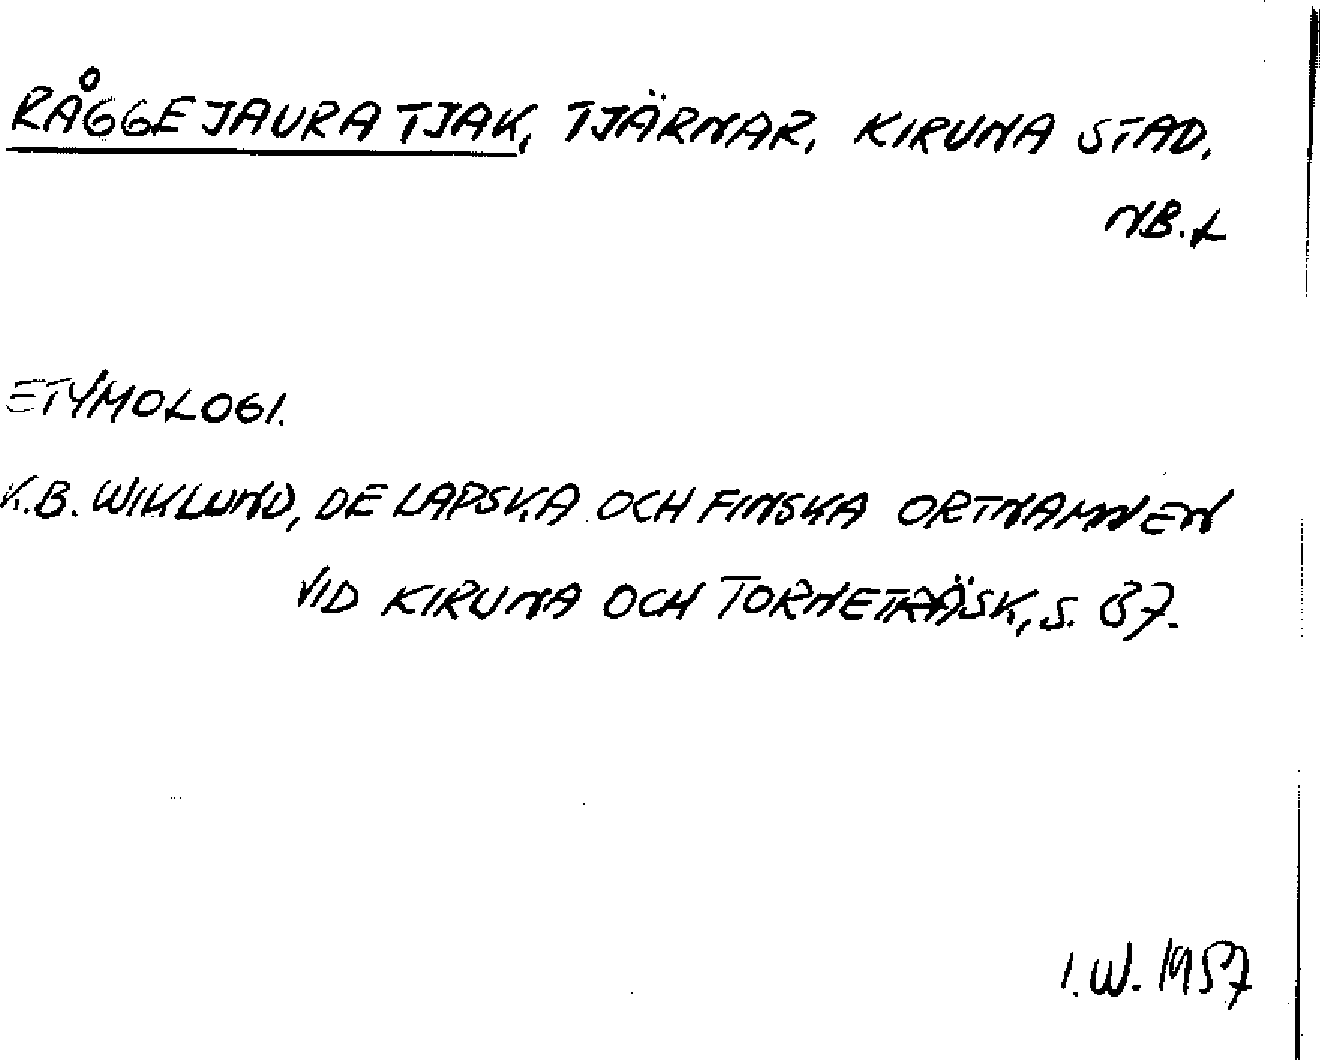 RÅGGEJAURATJAK, TJÄRNAR, KIRUNA STAD.
NB.L
ETYMOLOGI.
K.B. WIKLUND, DE LAPSKA OCH FINSKA ORTNAMNEN
VID KIRUNA OCH TORNETRÄSK, S. 87.
I.W. 1957